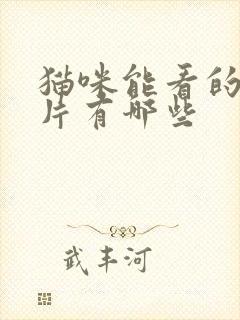 猫咪能看的
片有哪些
武丰河